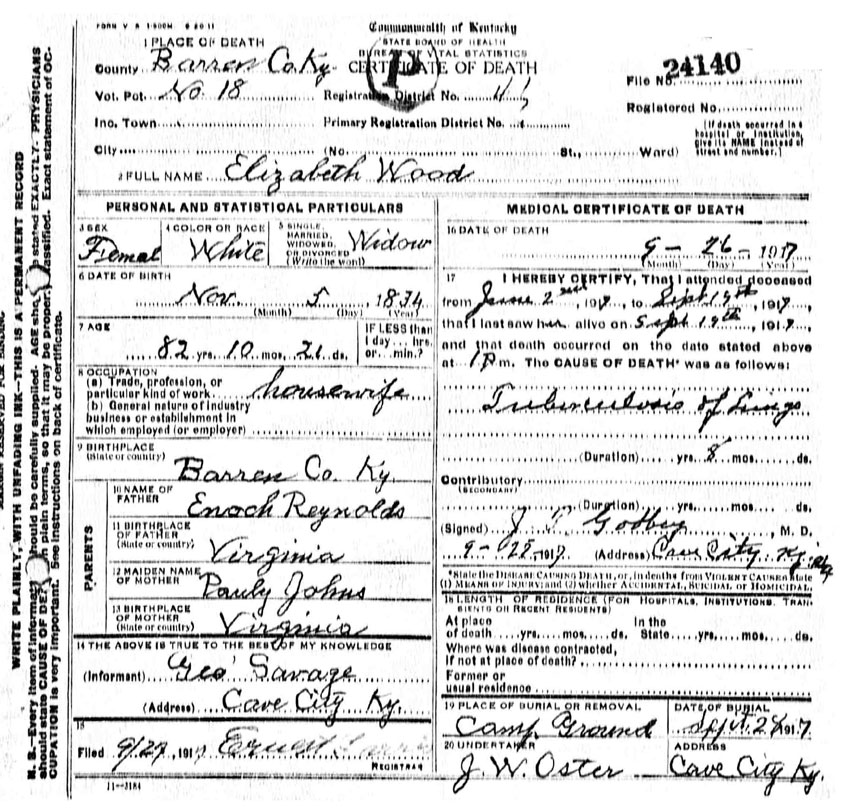 FORM V S 1-500M 6 20 11
Commonwealth of Kentucky
STATE BOARD OF HEALTH
BUREAU OF VITAL STATISTICS
CERTIFICATE OF DEATH
1 PLACE OF DEATH
County Barren Co. Ky.
Vot. Pct. No 18 Registration District No. 41
Inc. Town Primary Registration District No.
City (No. St., Ward)
File No. 24140
Registered No.
(If death occurred in a
hospital or institution,
give its NAME instead of
street and number.)
2 FULL NAME Elizabeth Wood
PERSONAL AND STATISTICAL PARTICULARS
3 SEX Femal
4 COLOR OR RACE White
5 SINGLE, MARRIED, WIDOWED, OR DIVORCED (Write the word) Widow
6 DATE OF BIRTH
Nov. 5 1834
(Month) (Day) (Year)
7 AGE
82 yrs. 10 mos. 21 ds.
IF LESS than
1 day... hrs.
or... min.?
8 OCCUPATION
(a) Trade, profession, or
particular kind of work housewife
(b) General nature of industry
business or establishment in
which employed (or employer)
9 BIRTHPLACE
(State or country)
Barren Co. Ky.
PARENTS
10 NAME OF
FATHER
Enoch Reynolds
11 BIRTHPLACE
OF FATHER
(State or country)
Virginia
12 MAIDEN NAME
OF MOTHER
Pauly Johns
13 BIRTHPLACE
OF MOTHER
(State or country)
Virginia
14 THE ABOVE IS TRUE TO THE BEST OF MY KNOWLEDGE
(Informant) Geo Savage
(Address) Cave City Ky.
15
Filed 9/27, 1917 Ernest
REGISTRAR
11-3184
MEDICAL CERTIFICATE OF DEATH
16 DATE OF DEATH
9 - 26 - 1917
(Month) (Day) (Year)
17 I HEREBY CERTIFY, That I attended deceased
from June 2nd, 1917, to Sept 19th, 1917,
that I last saw her alive on Sept 19th, 1917,
and that death occurred on the date stated above
at 1 P m. The CAUSE OF DEATH* was as follows:
Tuberculosis of Lungs
(Duration) yrs. 8 mos. ds.
Contributory
(SECONDARY)
(Duration) yrs. mos. ds.
(Signed) Godbey, M. D.
9-28-1917 (Address) Cave City, Ky.
*State the DISEASE CAUSING DEATH, or, in deaths from VIOLENT CAUSES state
(1) MEANS OF INJURY; and (2) whether ACCIDENTAL, SUICIDAL or HOMICIDAL.
18 LENGTH OF RESIDENCE (FOR HOSPITALS, INSTITUTIONS, TRAN-
SIENTS OR RECENT RESIDENTS)
At place In the
of death yrs. mos. ds. State yrs. mos. ds.
Where was disease contracted,
If not at place of death?
Former or
usual residence
19 PLACE OF BURIAL OR REMOVAL
Camp Ground
DATE OF BURIAL
Sept. 27 1917
20 UNDERTAKER
J. W. Oster
ADDRESS
Cave City Ky.
WRITE PLAINLY, WITH UNFADING INK—THIS IS A PERMANENT RECORD
N. B.—Every item of information should be carefully supplied. AGE should be stated EXACTLY. PHYSICIANS
should state CAUSE OF DEATH in plain terms, so that it may be properly classified. Exact statement of OC-
CUPATION is very important. See instructions on back of certificate.